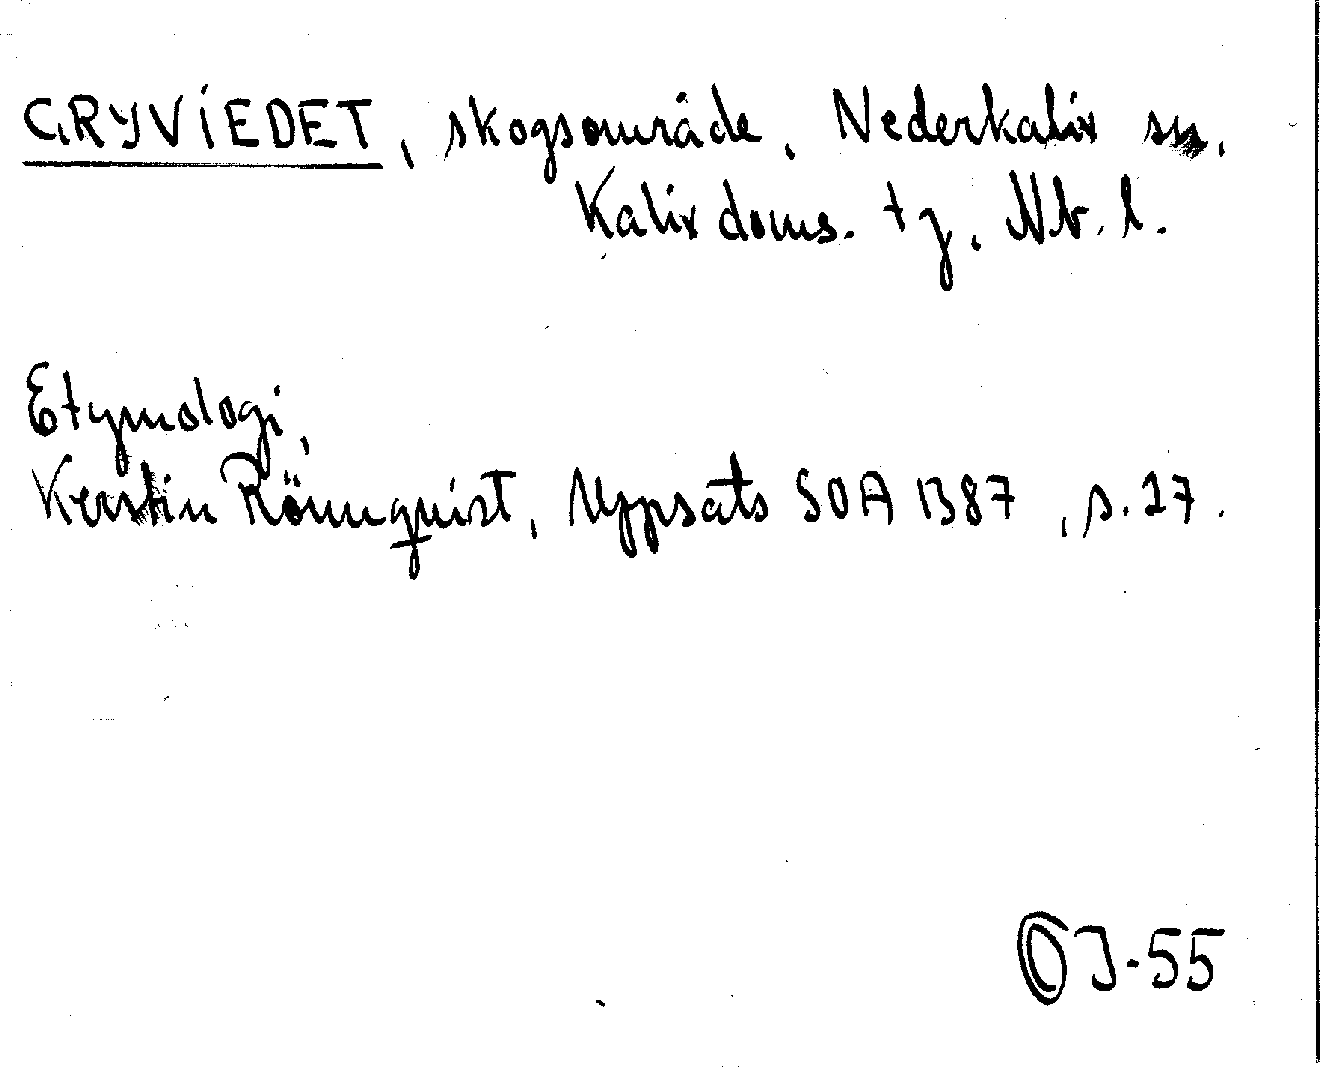 GRYVIEDET, skogsområde, Nederkalix sn,
Kalix doms. tg, Nb. l.
Etymologi,
Kerstin Rönnquist, Uppsats SOA 1387, s. 27.
OJ-55